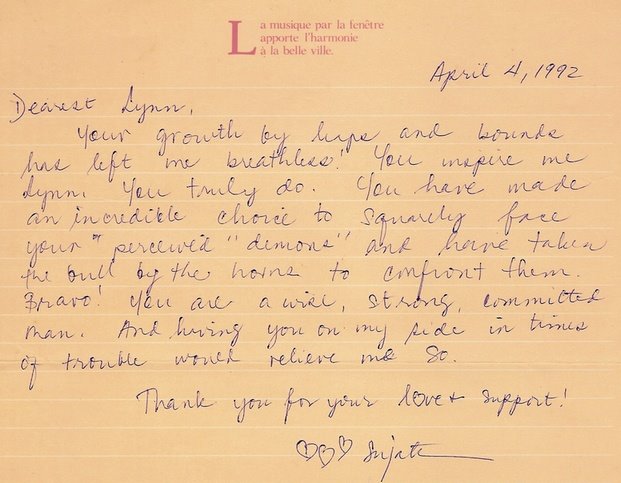 La musique par la fenêtre
apporte l'harmonie
à la belle ville.
April 4, 1992
Dearest Lynn,
Your growth by leaps and bounds
has left me breathless! You inspire me
Lynn. You truly do. You have made
an incredible choice to squarely face
your "perceived" demons" and have taken
the bull by the horns to confront them.
Bravo! You are a wise, strong, committed
man. And having you on my side in times
of trouble would relieve me so.
Thank you for your love + support!
♡♡♡ Sujata